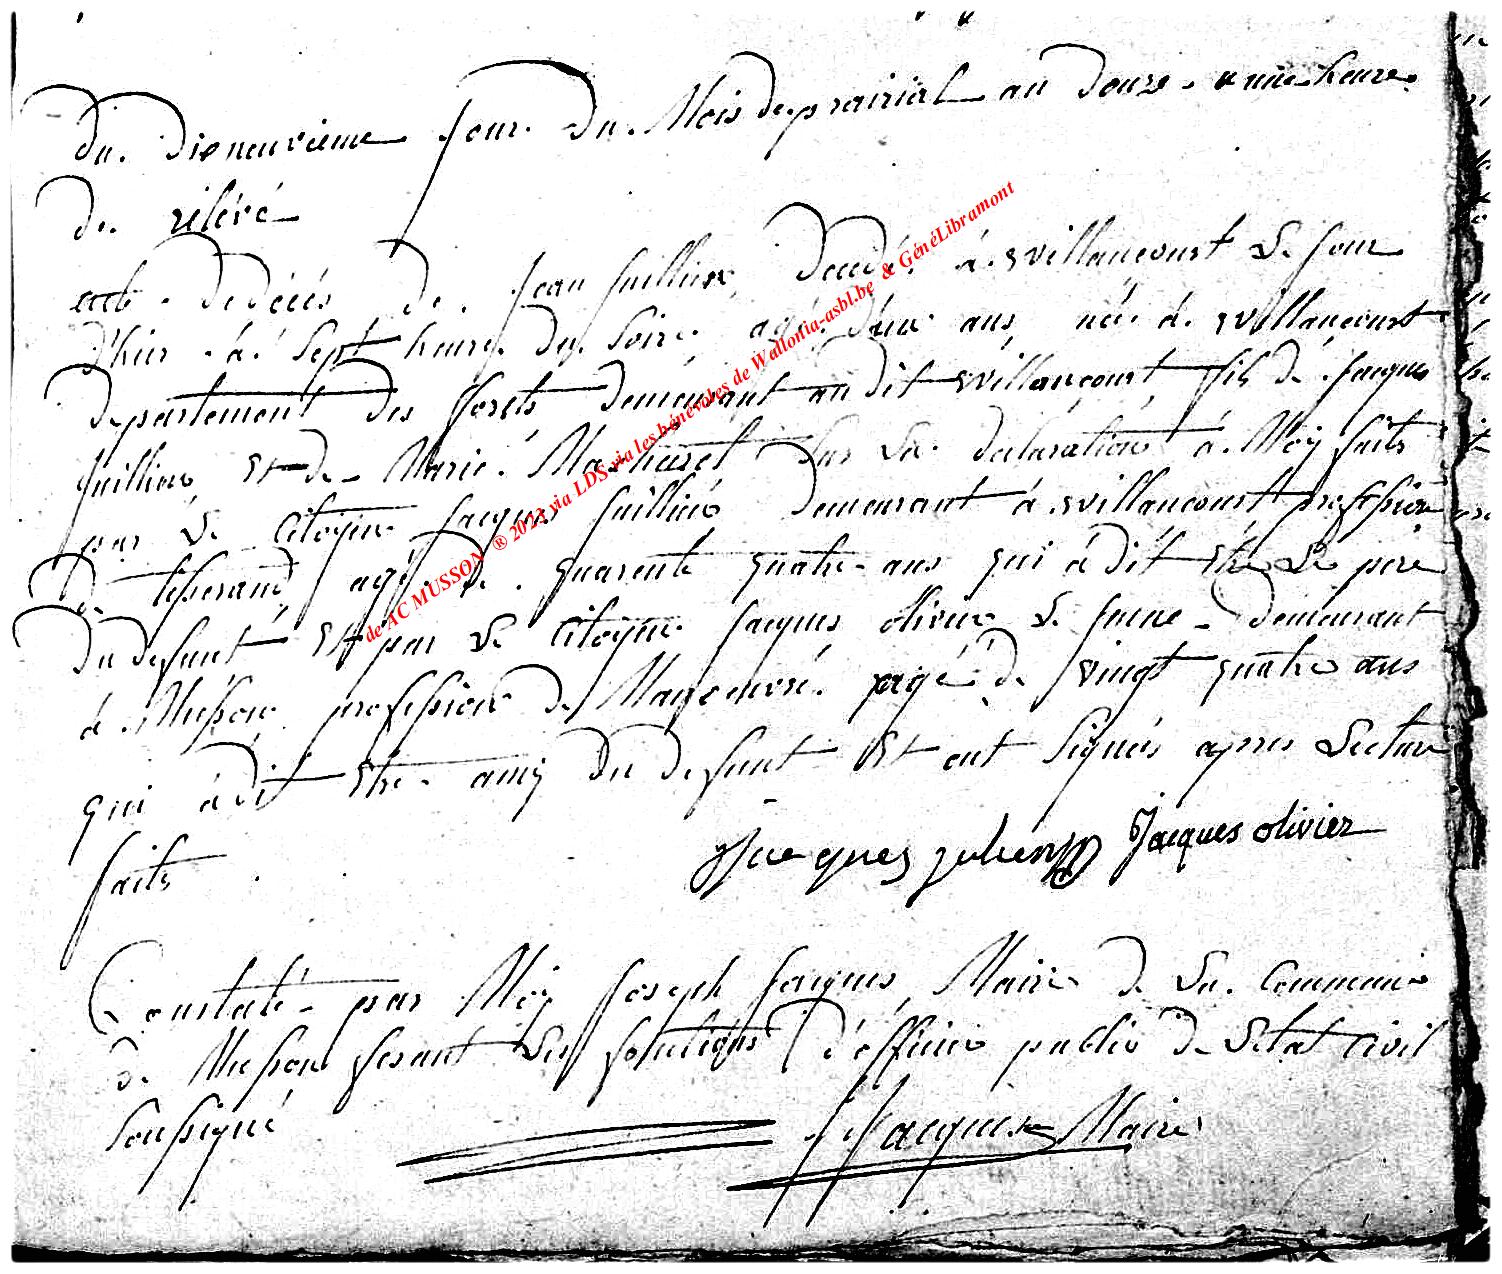 Du dixneuvieme Jour du Mois de prairial an douze a une heure
de rélévé
acte de décés de Jean Juillien Decedé à Willancourt Le Jour
d'hier à Sept heures du Soire agé deux ans, née à Willancourt
departement des forets demeurant au dit Willancourt fils de Jacques
Juillien et de Marie Sur La declaration à Moÿ faite
par Le Citoÿen Jacques Juillien demeurant à Willancourt profession
de tesserand agé de quarente quatre ans qui à dit être Le père
du defunt Et par Le Citoÿen Jacques Olivier Le Jeune demeurant
à Musson profession de Manoeuvre agé de Vingt quatre ans
qui à dit être amÿ du defunt Et ont Signés apres Lecture
faite
Jacques julien Jacques olivier
Constaté par Moÿ Joseph Jacques Maire de La Commune
de Musson fesant Les d'officier public de Letat Civil
Soussigné
J Jacques Maire
de AC MUSSON ® 2023 via LDS via les bénévoles de Wallonia-asbl.be & GénéLibramont